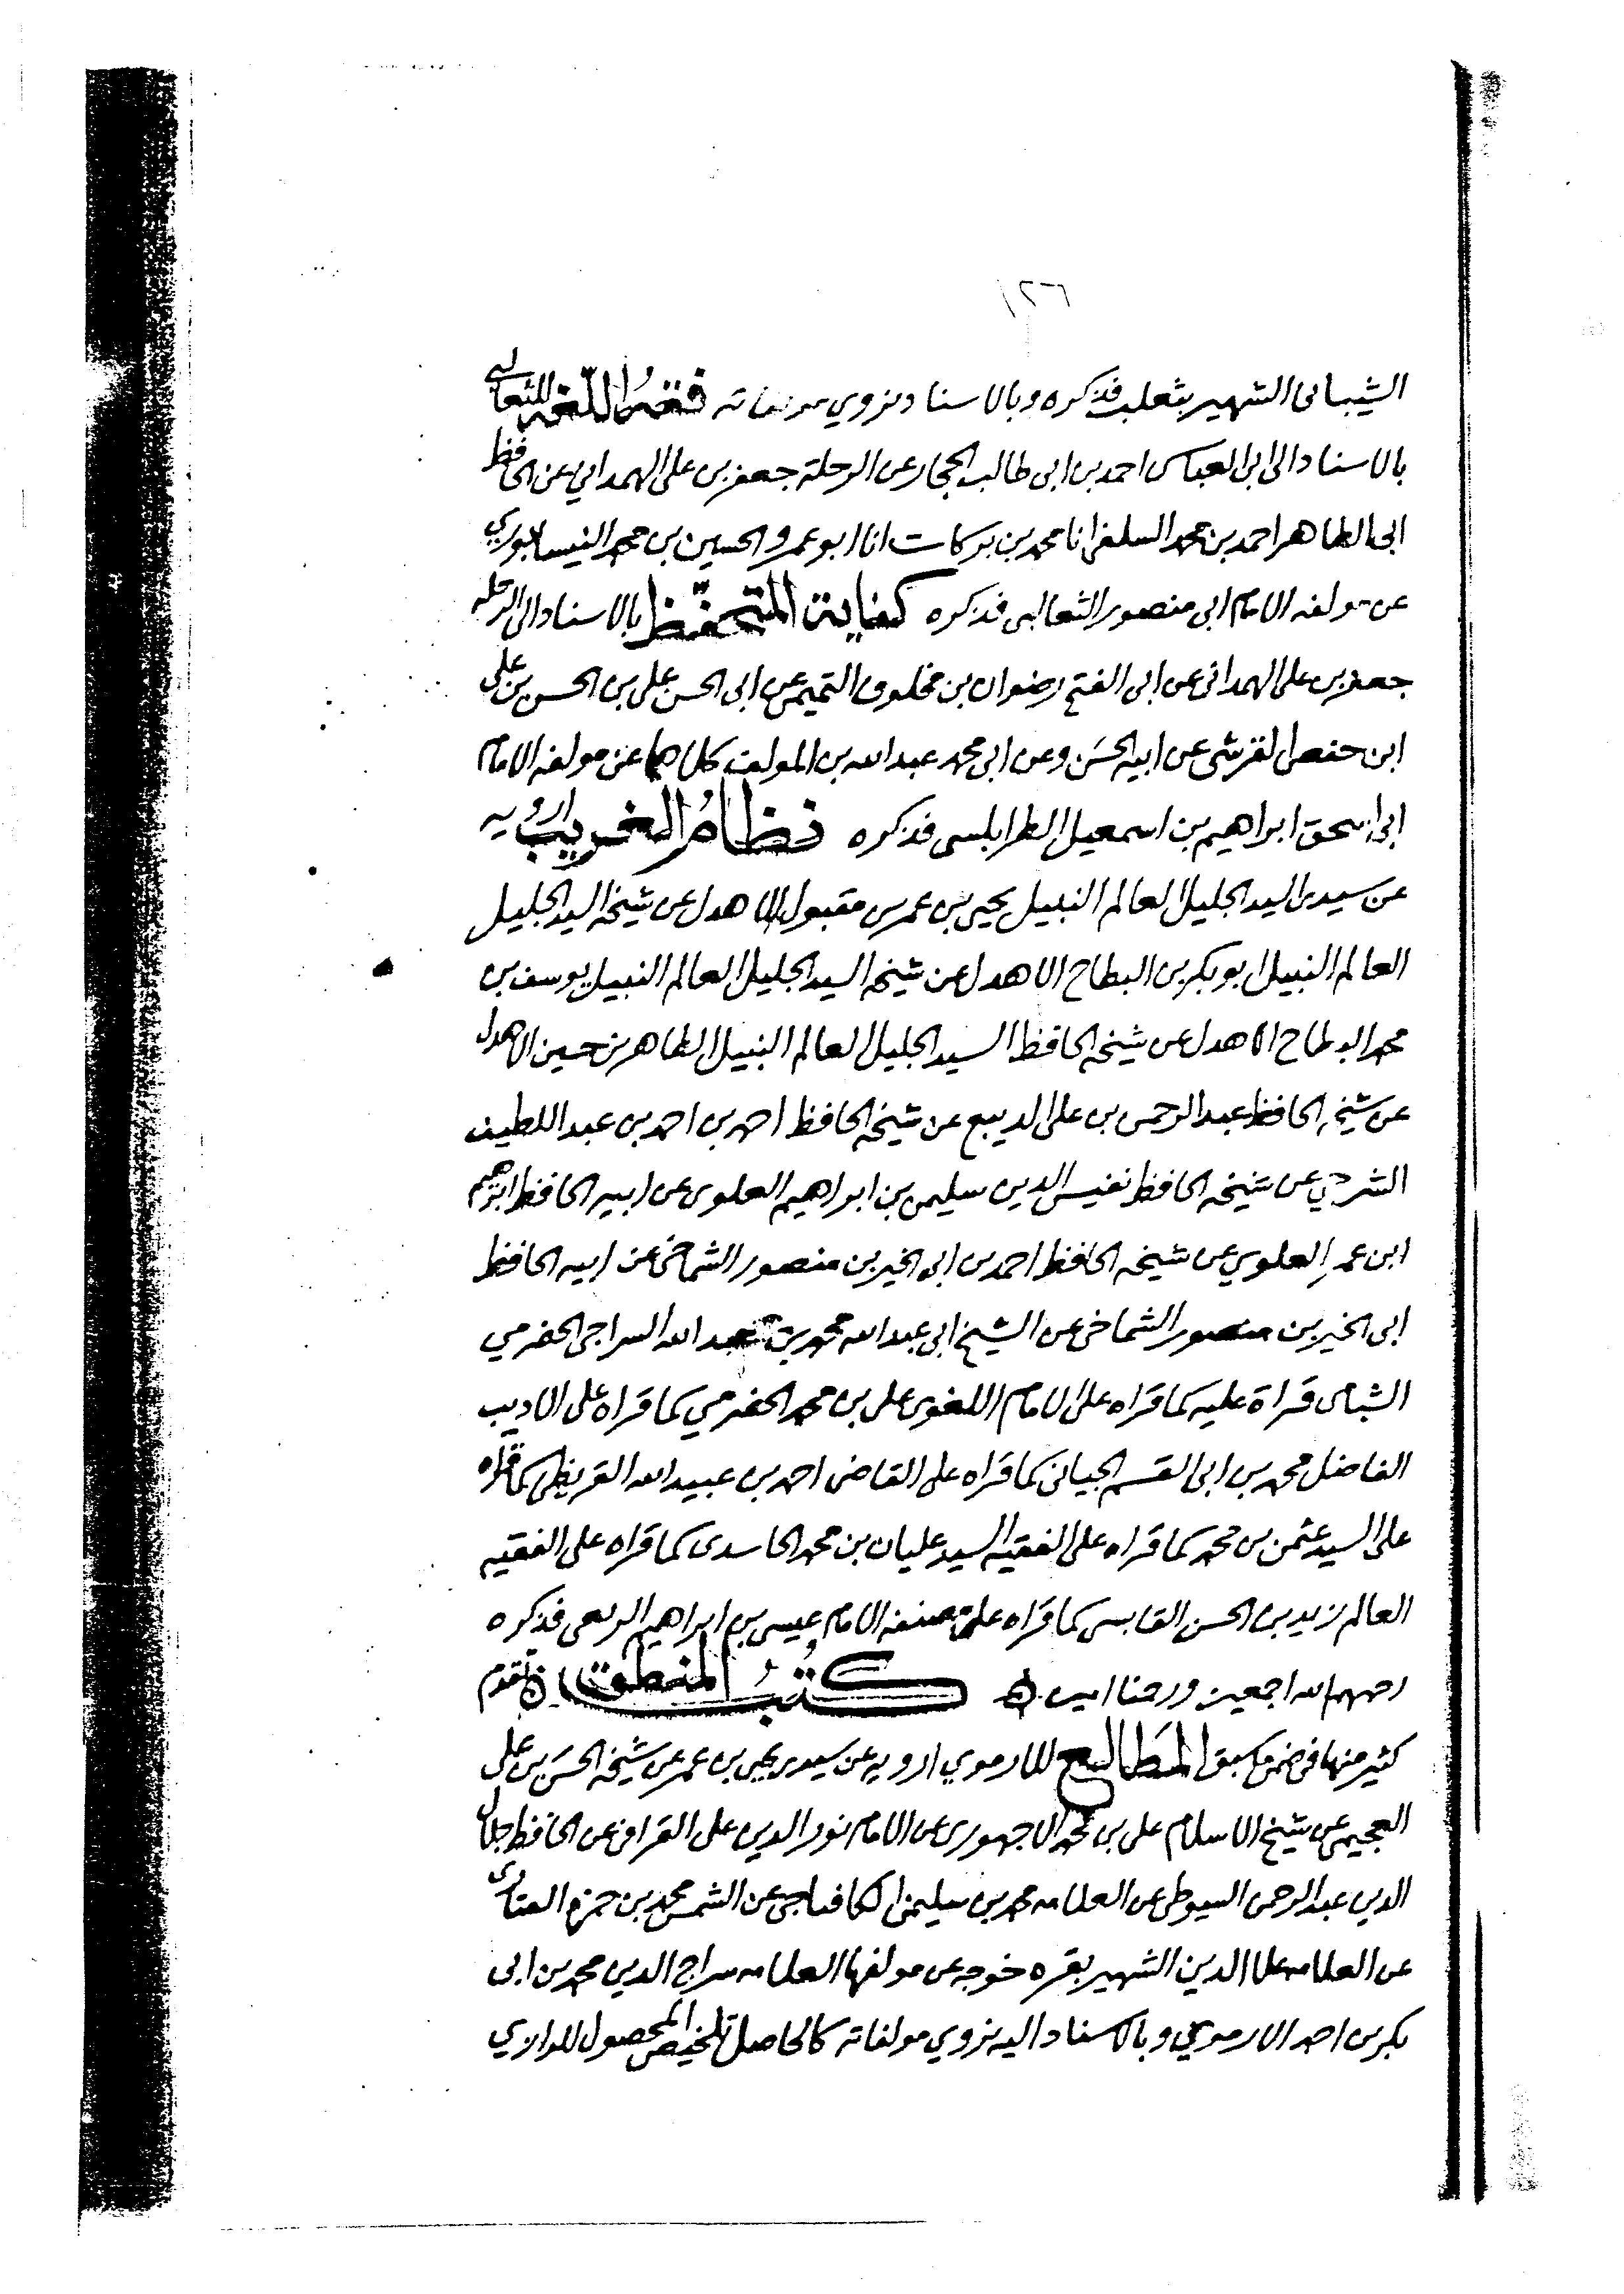 ١٢٦
الشيباني الشهير بثعلب فذكره وبالاسناد نروي مولفاته فقهُ اللّغه للثعالبي
بالاسناد الى ابي العباس احمد بن ابي طالب الحجار عن الرحلة جعفر بن علي الهمداني عن الحافظ
ابي الطاهر احمد بن محمد السلفي انا محمد بن بركات انا ابو عمرو الحسين بن محمد النيسابوري
عن مولفه الامام ابي منصور الثعالبي فذكره كفاية المتحفّظ بالاسناد الى الرحله
جعفر بن علي الهمداني عن ابي الفتح رضوان بن مخلوف التميمي عن ابي الحسن علي بن الحسن بن علي
ابن حفص القرشي عن ابيه الحسَن وعن ابي محمد عبد الله بن المولف كلاهما عن مولفه الامام
ابي اسحق ابراهيم بن اسمعيل الطرابلسي فذكره نظامُ الغريب ارويه
عن سيدي السيد الجليل العالم النبيل يحيى بن عمر مقبول الاهدل عن شيخه السيد الجليل
العالم النبيل ابو بكر بن البطاح الاهدل عن شيخه السيد الجليل العالم النبيل يوسف بن
محمد البطاح الاهدل عن شيخه الحافظ السيد الجليل العالم النبيل الطاهر بن حسين الاهدل
عن شيخه الحافظ عبد الرحمن بن علي الديبع عن شيخه الحافظ احمد بن احمد بن عبد اللطيف
الشرجي عن شيخه الحافظ نفيس الدين سليمن بن ابراهيم العلوي عن ابيه الحافظ ابرهيم
ابن عمر العلوي عن شيخه الحافظ احمد بن ابي الخير بن منصور الشماخي عن ابيه الحافظ
ابي الخير بن منصور الشماخي عن الشيخ ابي عبد الله محمد بن عبد الله السراجي الحضرمي
الشبامي قراة عليه كما قراه على الامام اللغوي علي بن محمد الحضرمي كما قراه على الاديب
الفاضل محمد بن ابي القسم الجياني كما قراه على القاضي احمد بن عبيد الله القريظي كما قراه
على السيد عثمن بن محمد كما قراه على الفقيه السيد عليان بن محمد الحاسدي كما قراه على الفقيه
العالم زيد بن الحسن القابسي كما قراه على مصنفه الامام عيسى بن ابراهيم الربعي فذكره
رحمهم الله اجمعين ورحمنا امين كتُبُ المنطق تقدم
كثير منها في ضمن ما سبق المَطالع للارموي ارويه عن سيدي يحيى بن عمر عن شيخه الحسَن بن علي
العجيمي عن شيخ الاسلام علي بن محمد الاجهوري عن الامام نور الدين علي القرافي عن الحافظ جلال
الدين عبد الرحمن السيوطي عن العلامه محمد بن سليمن الكافياجي عن الشمس محمد بن حمزه الفناري
عن العلامه علا الدين الشهير بقره خوجه عن مولفها العلامه سراج الدين محمد بن ابي
بكر بن احمد الارموي وبالاسناد اليه نروي مولفاته كالحاصل تلخيص المحصول للرازي